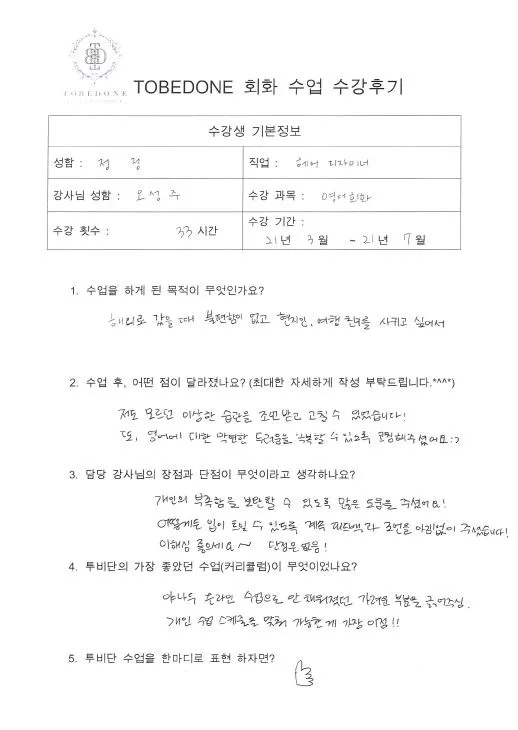 TOBEDONE
TOBEDONE 회화 수업 수강후기
수강생 기본정보
성함 : 정 정
직업 : 헤어 디자이너
강사님 성함 : 오성주
수강 과목 : 영어회화
수강 횟수 : 33 시간
수강 기간 :
21년 3월 ~ 21년 7월
1. 수업을 하게 된 목적이 무엇인가요?
해외로 갔을 때 불편함이 없고 현지인, 여행 친구를 사귀고 싶어서
2. 수업 후, 어떤 점이 달라졌나요? (최대한 자세하게 작성 부탁드립니다.*^^*)
저도 모르던 이상한 습관을 조언받고 고칠 수 있었습니다!
또, 영어에 대한 막연한 두려움을 극복할 수 있도록 코칭해주셨어요:>
3. 담당 강사님의 장점과 단점이 무엇이라고 생각하나요?
개인의 부족함을 보탄할 수 있도록 많은 도움을 주셨어요!
어떻게든 입이 트일 수 있도록 계속 피드백과 조언을 아낌없이 주셨습니다!
이해심 좋으세요~ 단점은 없음!
4. 투비단의 가장 좋았던 수업(커리큘럼)이 무엇이었나요?
야나두 온라인 수업으로 안 채워졌던 가려운 부분을 긁어주심.
개인 수업 스케줄을 맞춰 가능한게 가장 이점!!
5. 투비단 수업을 한마디로 표현 하자면?